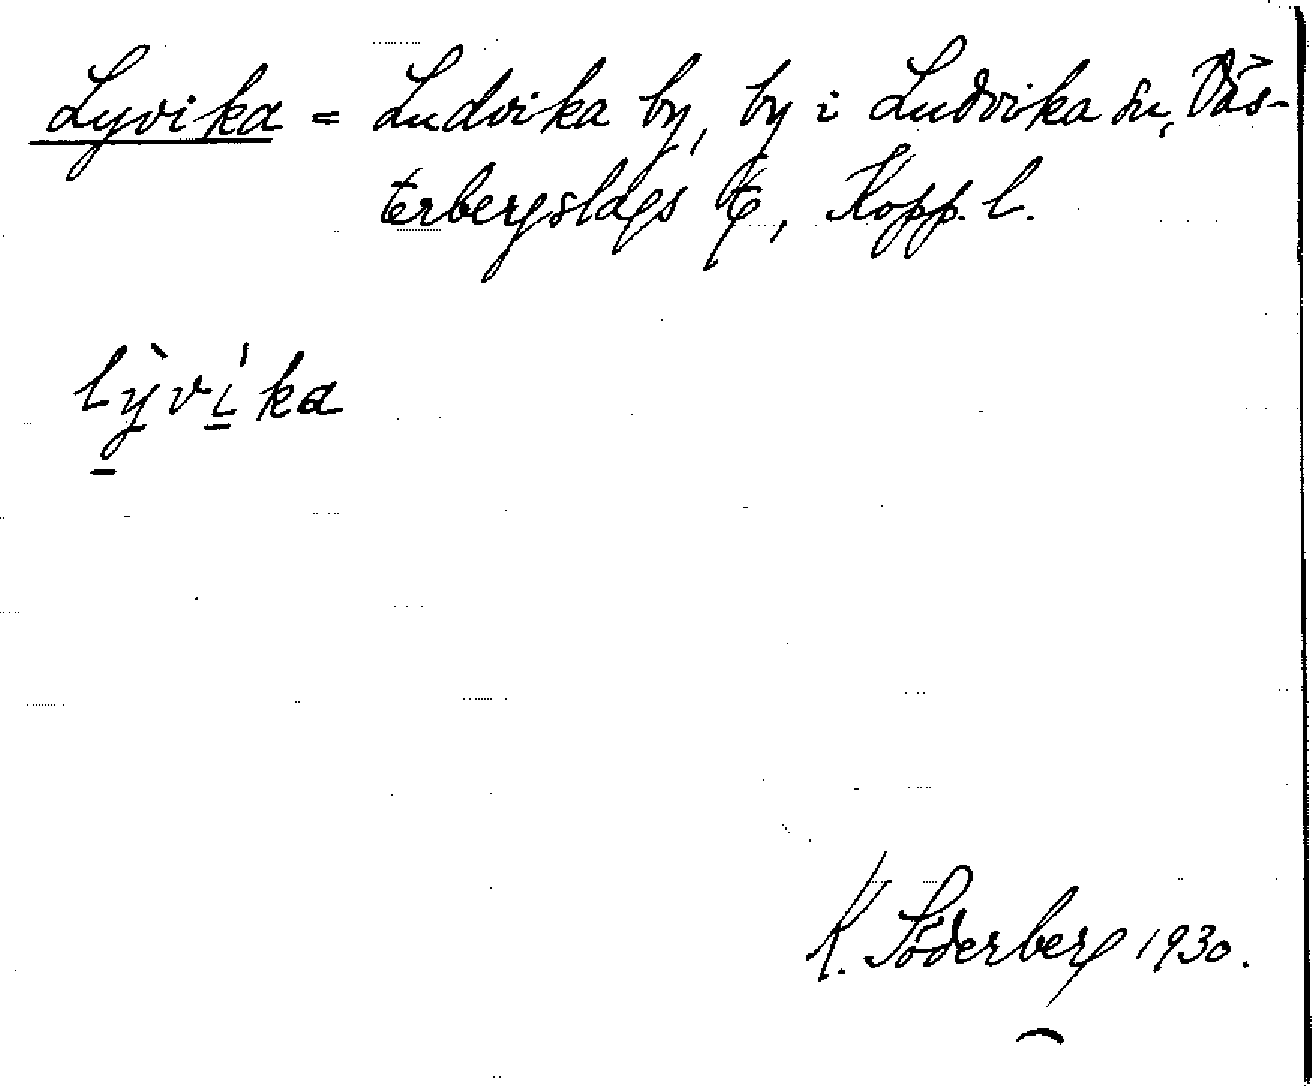 Lyvika = Ludvika by, by i Ludvika sn, Väs-
terbergslags , Kopp. l.
lỳvíka
K. Söderberg 1930.